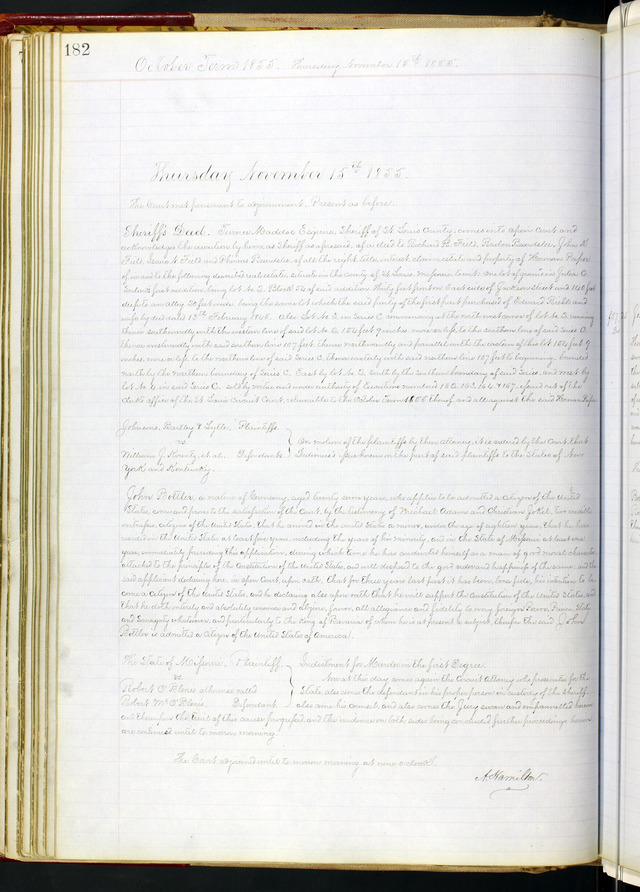 182
October Term 1855. Thursday November 15th 1855.
Thursday November 15th 1855.
The Court met pursuant to adjournment. Present as before.
Sheriff's Deed. Turner Maddox Esquire, Sheriff of St Louis County, comes into open Court and
acknowledges the execution by him as Sheriff as aforesaid, of a deed to Richard B. Field,
Field, and of all the right, title, interest, claim, estate and property of Hermann
of in and to the following described real estate, situate in the county of St Louis, Missouri to wit: One lot of ground in Julia C.
addition being lot No 2, Block 54 of said addition thirty feet front on East side of Jackson street and 120 feet
deep to an alley 20 feet wide being the same lot which the said party of the first part purchased of Edward and
wife by deed dated 13th February 1846. Also Lot No 2, in Series C commencing at the north west corner of lot No 2, running
thence southwardly with the western line of said lot No 2, 104 feet 9 inches more or less to the southern line of said Series C.
thence westwardly with said southern line 107 feet thence northwardly and parallel with the western of the lot 104 feet 9
inches more or less to the northern line of said Series C. thence eastwardly with said northern line 107 feet to beginning, bounded
north by the northern boundary of Series C. East by lot No 2, South by the southern boundary of said Series, and west by
lot No in said Series C. sold by virtue and under authority of Executions numbered issued out of the
clerk's office of the St Louis Circuit Court, returnable to the October Term 1855 thereof and all against the said Herman
Johnson, Bartley & Lytle, Plaintiffs
vs
William J. et al. Defendants
On motion of the plaintiffs by their attorney, it is ordered by the Court that
on the part of said plaintiffs to the States of New
York and Kentucky.
John Bottler, a native of Germany, aged twenty seven years, who applies to be admitted a Citizen of the United
States, comes and proves to the satisfaction of the Court, by the testimony of Michael Adams and Christian two credible
witnesses, citizens of the United States, that he arrived in the United States a minor, under the age of eighteen years, that he has
resided in the United States at least five years, including the years of his minority, and in the State of Missouri at least one
year, immediately preceding this application, during which time he has conducted himself as a man of good moral character
attached to the principles of the Constitution of the United States, and well disposed to the good order and happiness of the same, and the
said applicant declaring here in open Court, upon oath, that for three years last past it has been, bona fide, his intention to be
come a Citizen of the United States, and he declaring also upon oath that he will support the Constitution of the United States, and
that he doth entirely and absolutely renounce and abjure, forever, all allegiance and fidelity to every foreign Power, Prince, State
and Sovereignty whatsoever, and particularly to the King of Bavaria of whom he is at present a subject, therefore the said John
Bottler is admitted a Citizen of the United States of America.
The State of Missouri, Plaintiff,
vs.
Robert O'Blenis otherwise called
Robert McO'Blenis, Defendant.
Indictment for Murder in the first Degree.
Now at this day comes again the Circuit Attorney who prosecutes for the
State, also comes the defendant in his proper person in custody of the Sheriff.
also come his counsel, and also comes the Jury sworn and impannelled herein
and thereupon the trial of this cause progressed and the evidence on both sides being concluded further proceedings herein
are continued until to morrow morning.
The Court adjourned until to morrow morning at nine o'clock.
A. Hamilton.